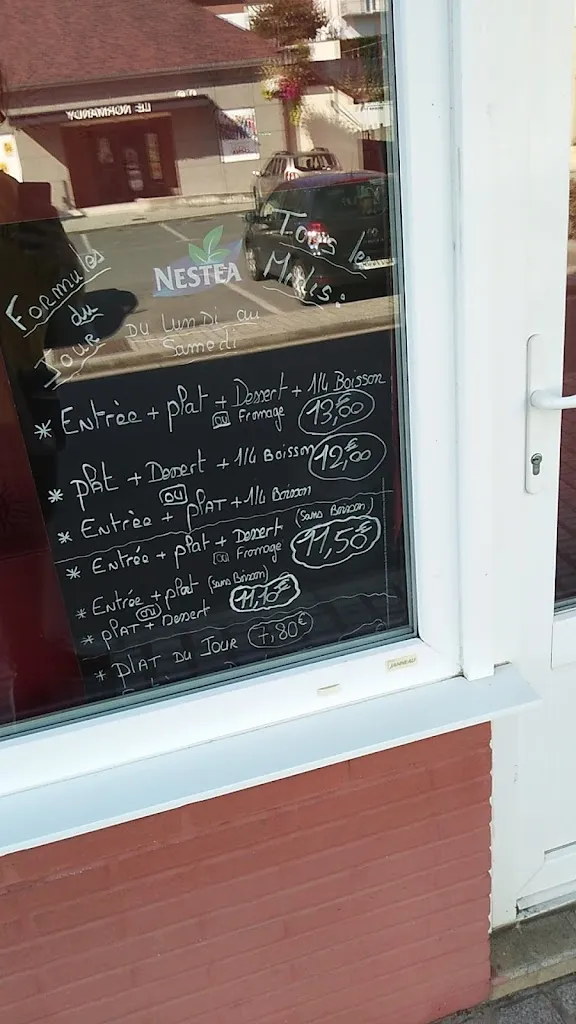 LE NORMANDY
NESTEA
Formules du Jour
Tous les Midis:
DU LUNDI au Samedi
* Entrée + plat + Dessert + 1/4 Boisson
ou Fromage 13,00€
* plat + Dessert + 1/4 Boisson 12,00€
ou
* Entrée + plat + 1/4 Boisson
* Entrée + plat + Dessert (sans Boisson)
ou Fromage 11,50€
* Entrée + plat (sans Boisson) 11,10€
ou
* plat + Dessert
* PLAT DU JOUR 7,80€
JANNEAU